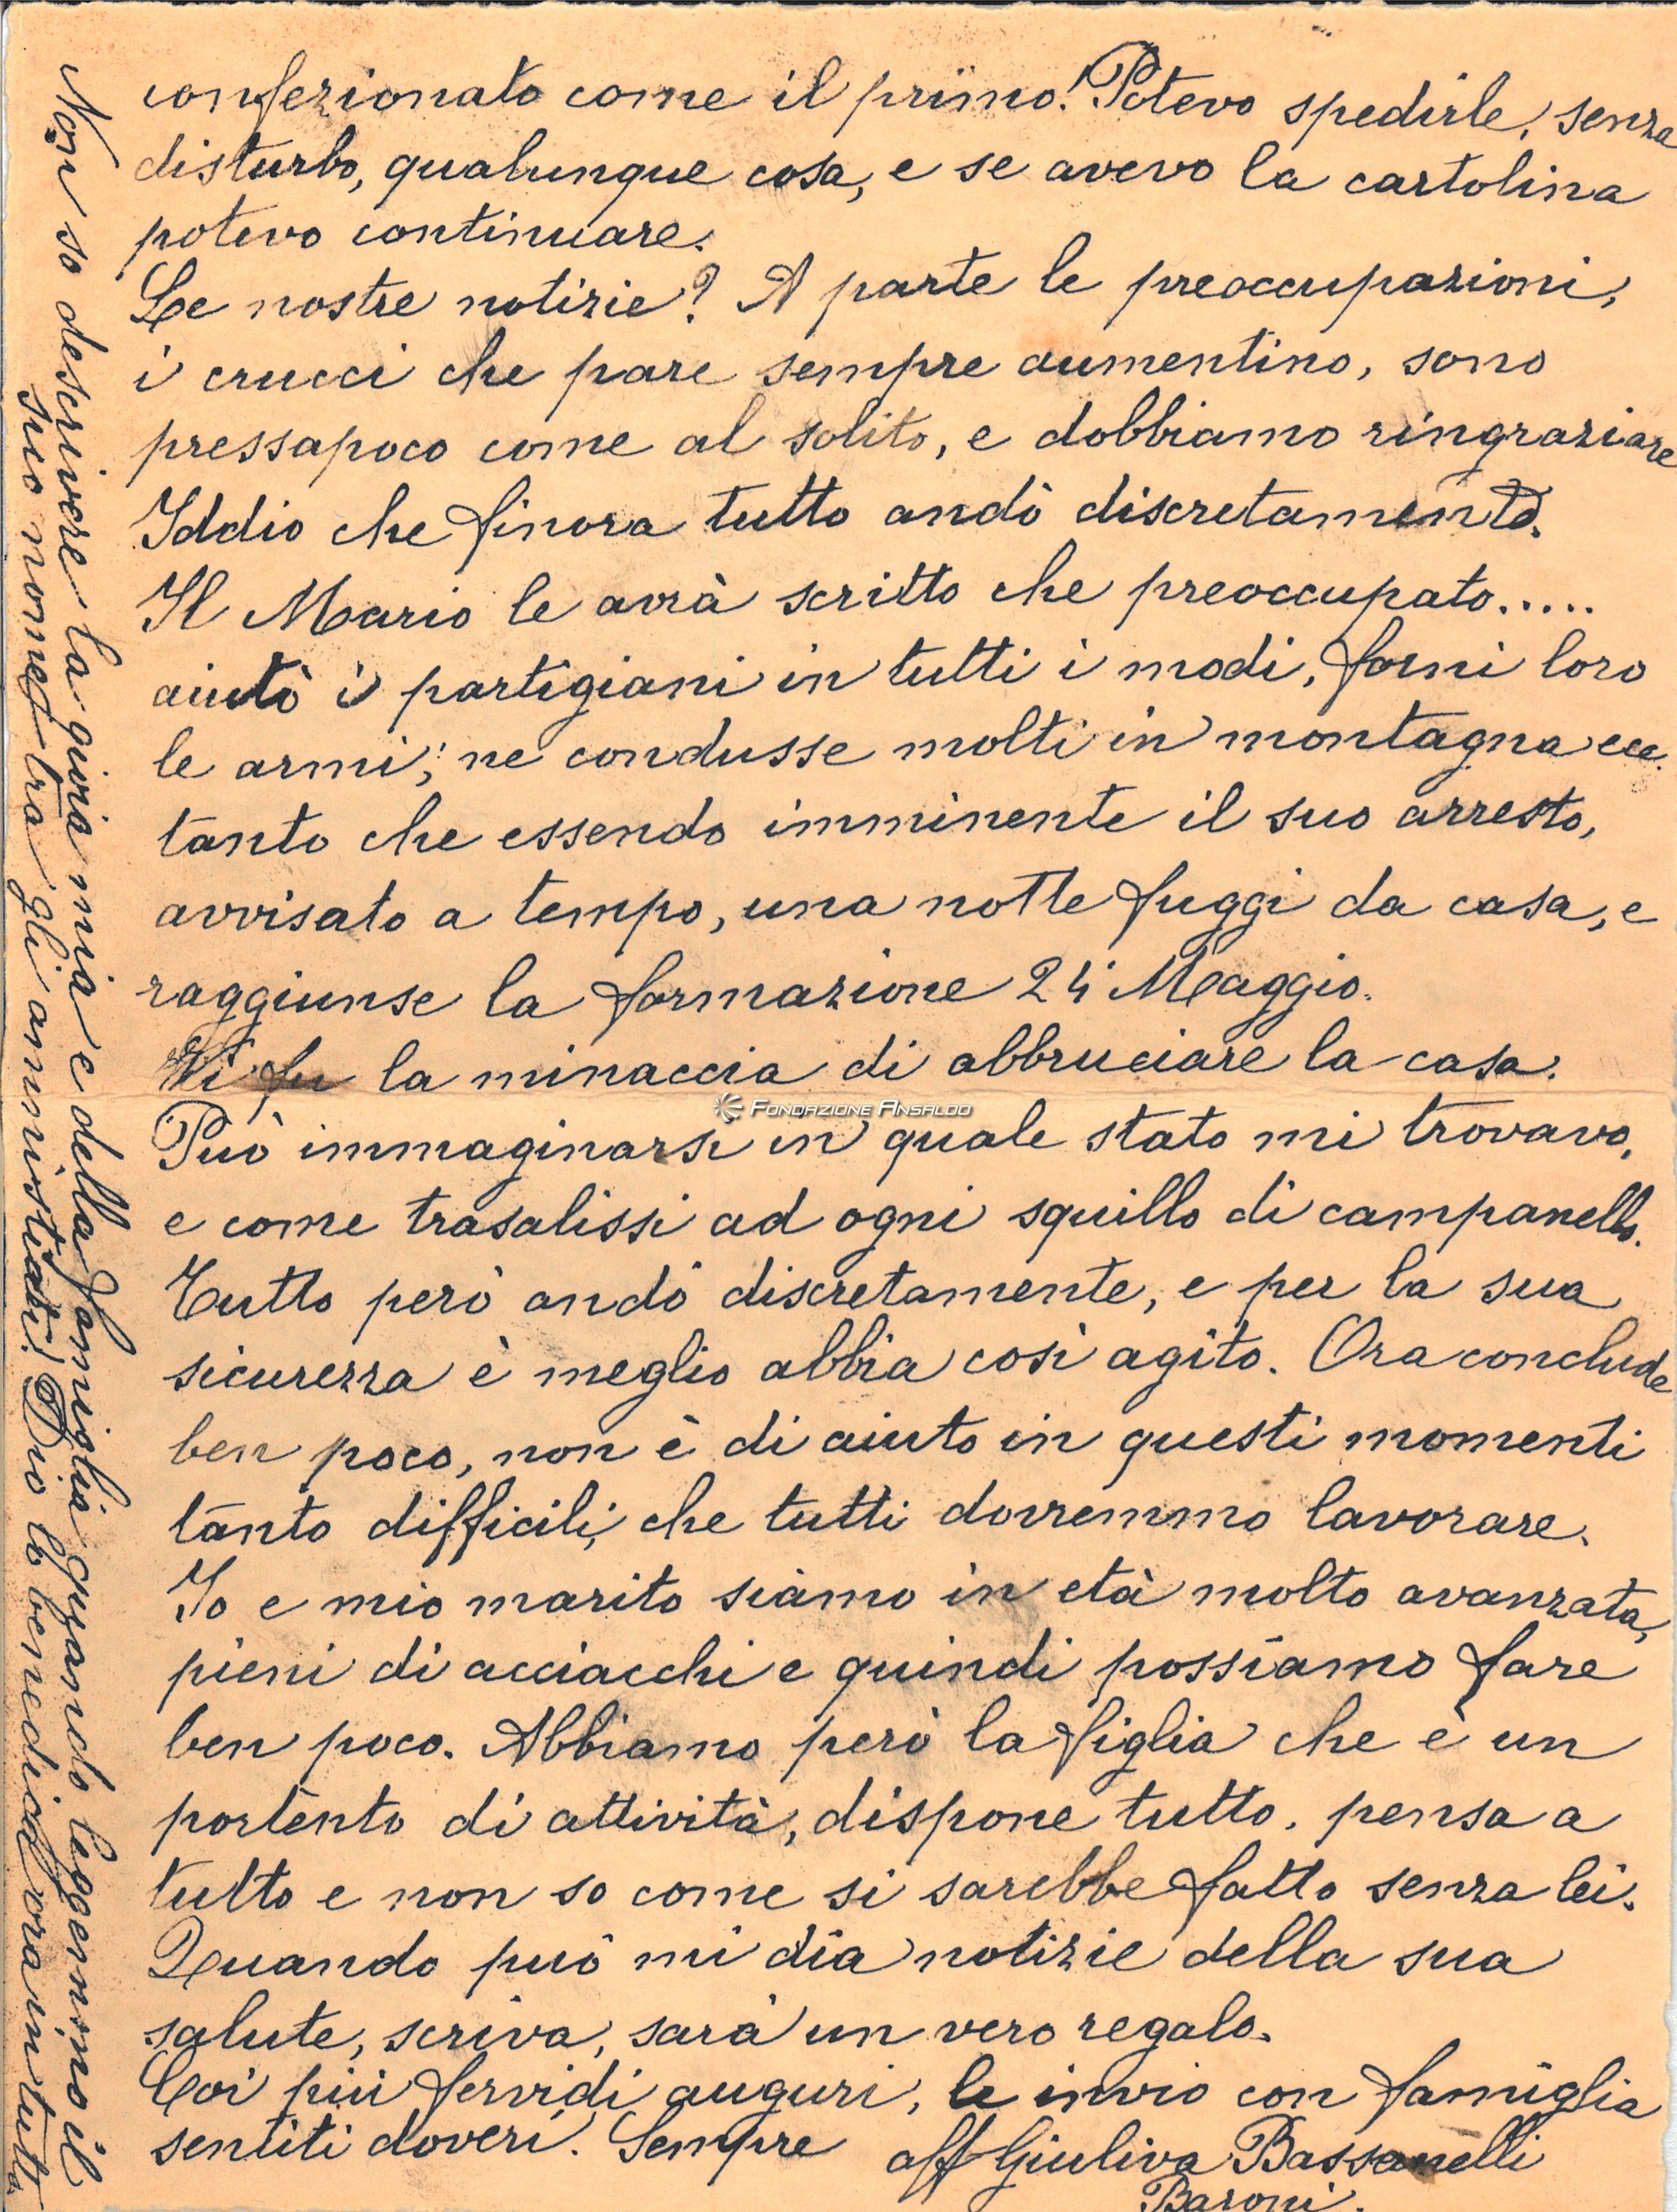 confezionato come il primo! Potevo spedirle, senza
disturbo, qualunque cosa, e se avevo la cartolina
potevo continuare.
Le nostre notizie? A parte le preoccupazioni,
i crucci che pare sempre aumentino, sono
pressapoco come al solito, e dobbiamo ringraziare
Iddio che finora tutto andò discretamente.
Il Mario le avrà scritto che preoccupato.....
aiutò i partigiani in tutti i modi, fornì loro
le armi; ne condusse molti in montagna ecc.
tanto che essendo imminente il suo arresto,
avvisato a tempo, una notte fuggì da casa, e
raggiunse la formazione 24 Maggio.
Vi fu la minaccia di abbruciare la casa.
FONDAZIONE ANSALDO
Può immaginarsi in quale stato mi trovavo,
e come trasalissi ad ogni squillo di campanello.
Tutto però andò discretamente, e per la sua
sicurezza è meglio abbia così agito. Ora conclude
ben poco, non è di aiuto in questi momenti
tanto difficili, che tutti dovremmo lavorare.
Io e mio marito siamo in età molto avanzata,
pieni di acciacchi e quindi possiamo fare
ben poco. Abbiamo però la figlia che è un
portento di attività, dispone tutto, pensa a
tutto e non so come si sarebbe fatto senza lei.
Quando può mi dia notizie della sua
salute, scriva, sarà un vero regalo.
Coi più fervidi auguri, le invio con famiglia
sentiti doveri. Sempre aff Giuliva Bassanelli
Baroni.
Non so descrivere la gioia mia e della famiglia quando leggemmo il
suo nome tra gli amnistiati! Dio lo benedica ora in tutto.